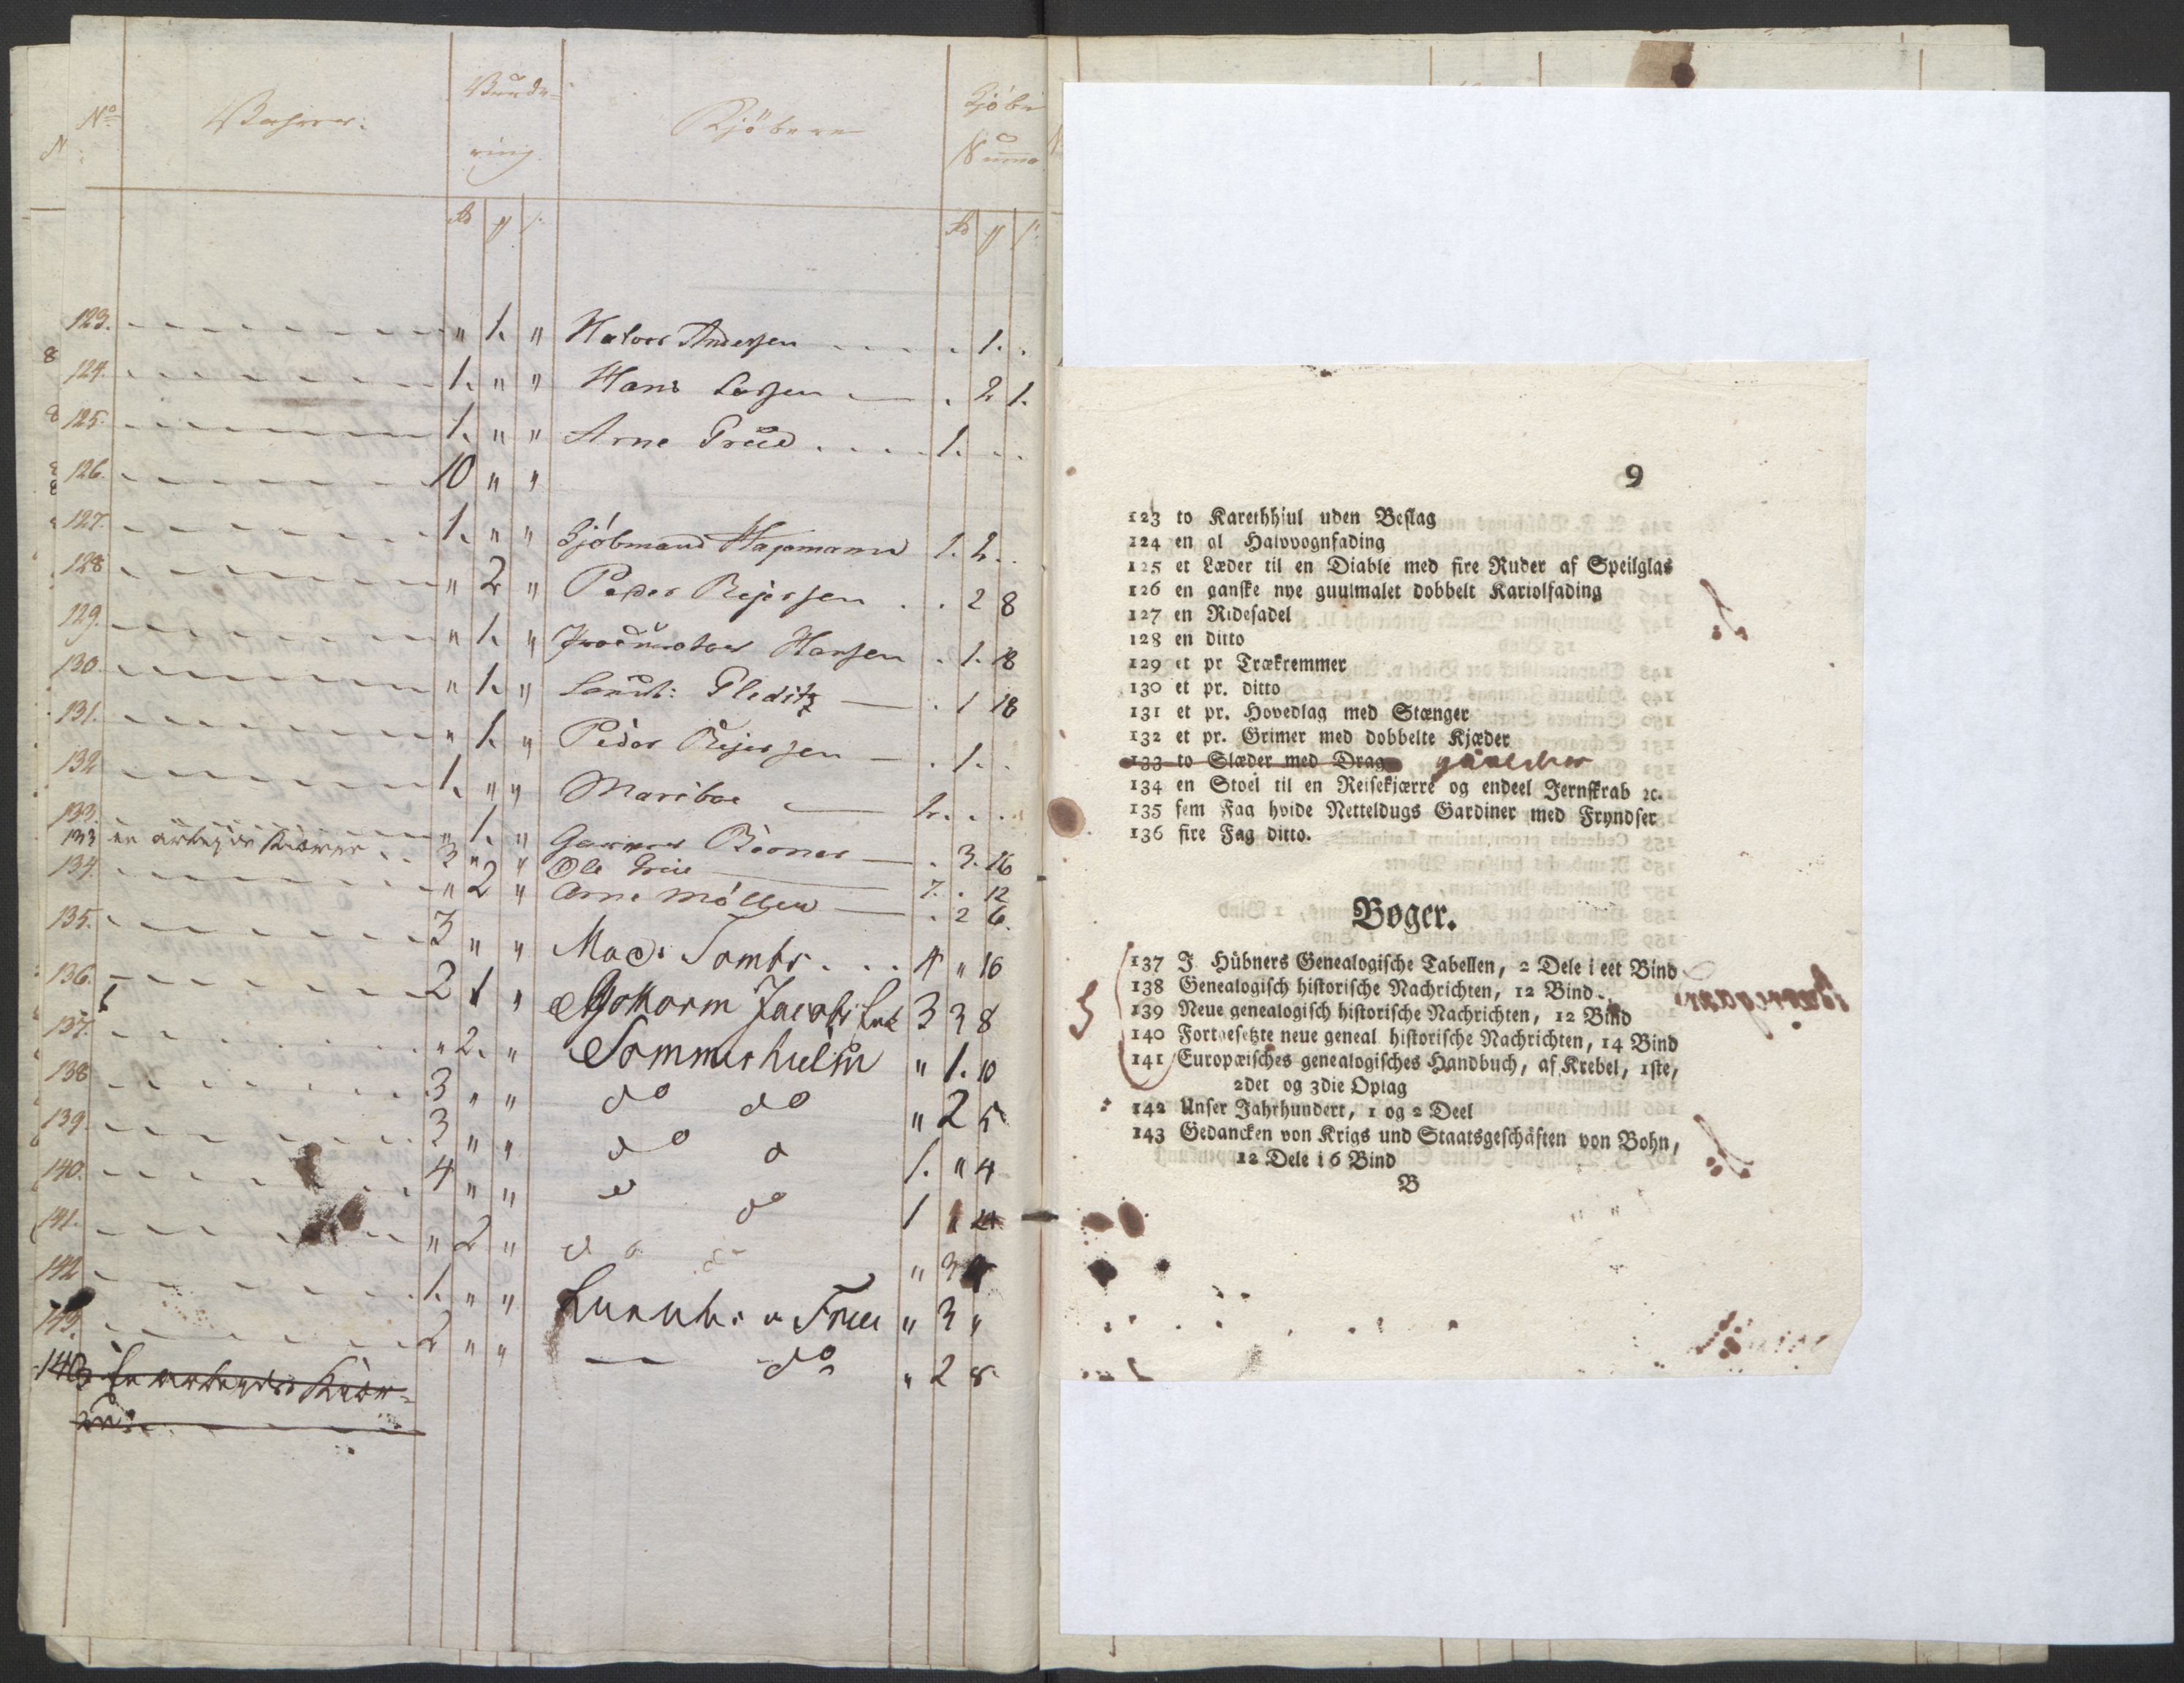 No Vahrer: Vurde- Kjöbere Kjöbe
ring Summa
123. " 1. " Halvor Andersen . 1. .
124. 1. " " Hans Larsen . 2 1.
125. 1. " " Arne Gru 1. . .
126. 10 " "
127. 1. " " Kjöbmand Hagemann 1. 2. .
128 " 2 " Peder Rejersen . . 2 8
129. " 1. " Procurator Hansen . 1. 18
130. " 1. " Gleditz . 1 18
131. " 1. " Peder Rejersen . 1. .
132 1. " " Mariboe
133. " 1. " Garver Börner . 3. 16
133 en arbeyds Kiærre 3 " " Ole 7. . 12
134. " 2 " Arne Möller . 2 6.
135. 3 " " Mad: 4 " 16
136. 2 1 " Jacobs 3 3 8
137. " 2. " Sommerhielm " 1. 10
138 3 " " do do " 2 5
139. 3 " " do d 1. " 4
140. 4 " " do 1
141. " 2 " do " 3
142 1. " " " 3 "
143. 2 " " do " 2 8
143 En arbeyds Kiær-
re
9
123 to Karethhjul uden Beslag
124 en al Halvvognfading
125 et Læder til en Diable med fire Ruder af Speilglas
126 en ganske nye guulmalet dobbelt Kariolfading
127 en Ridesadel
128 en ditto
129 et pr Trækremmer
130 et pr. ditto
131 et pr. Hovedlag med Stænger
132 et pr. Grimer med dobbelte Kjæder
133 to Slæder med Drag
134 en Stoel til en Reisekjærre og endeel Jernskrab ꝛc.
135 fem Fag hvide Netteldugs Gardiner med Fryndser
136 fire Fag ditto.
Bøger.
137 J Hübners Genealogische Tabellen, 2 Dele i eet Bind
138 Genealogisch historische Nachrichten, 12 Bind.
139 Neue genealogisch historische Nachrichten, 12 Bind
140 Fortgesetzte neue geneal historische Nachrichten, 14 Bind
141 Europæisches genealogisches Handbuch, af Krebel, 1ste,
2det og 3die Oplag
142 Unser Jahrhundert, 1 og 2 Deel
143 Gedancken von Krigs und Staatsgeschäften von Bohn,
12 Dele i 6 Bind
B